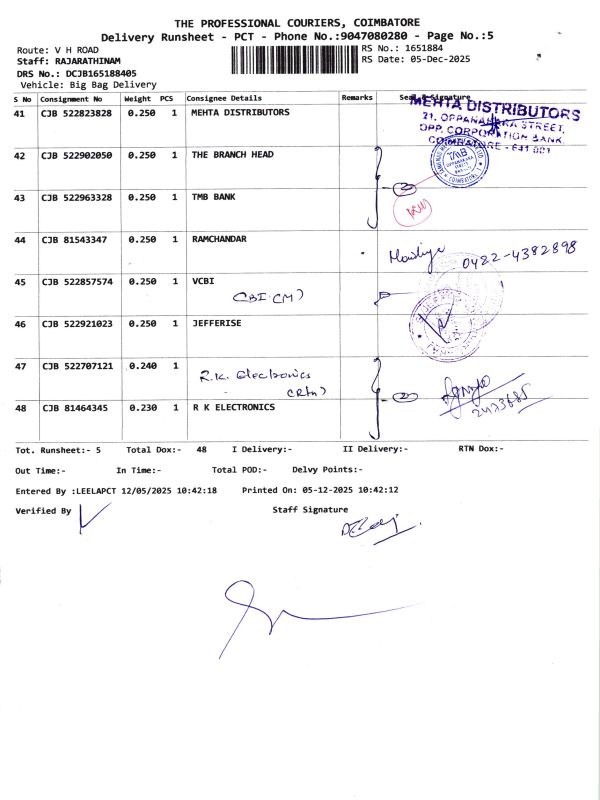 THE PROFESSIONAL COURIERS, COIMBATORE
Delivery Runsheet - PCT - Phone No.:9047080280 - Page No.:5
Route: V H ROAD
RS No.: 1651884
Staff: RAJARATHINAM
RS Date: 05-Dec-2025
DRS No.: DCJB165188405
Vehicle: Big Bag Delivery
S No Consignment No Weight PCS Consignee Details Remarks Seal & Signature
41 CJB 522823828 0.250 1 MEHTA DISTRIBUTORS
MEHTA DISTRIBUTORS
21, OPPANAKARA STREET,
OPP. CORPORATION BANK,
COIMBATORE - 641 001
42 CJB 522902050 0.250 1 THE BRANCH HEAD
TMB
2
43 CJB 522963328 0.250 1 TMB BANK
44 CJB 81543347 0.250 1 RAMCHANDAR
0422-4382898
45 CJB 522857574 0.250 1 VCBI
(BI CM)
46 CJB 522921023 0.250 1 JEFFERISE
47 CJB 522707121 0.240 1
R.K. Electronics
(Rtn)
2
48 CJB 81464345 0.230 1 R K ELECTRONICS
Tot. Runsheet:- 5 Total Dox:- 48 I Delivery:- II Delivery:- RTN Dox:-
Out Time:- In Time:- Total POD:- Delvy Points:-
Entered By :LEELAPCT 12/05/2025 10:42:18 Printed On: 05-12-2025 10:42:12
Verified By
Staff Signature